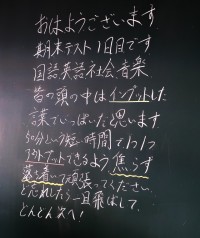 おはようございます
期末テスト1日目です
国語英語社会音楽
皆の頭の中はインプットした
言葉でいっぱいだと思います
50分という短い時間で1つ1つ
アウトプットできるよう焦らず
落ち着いて頑張ってください
ど忘れしたら一旦飛ばして、
どんどん次へ!